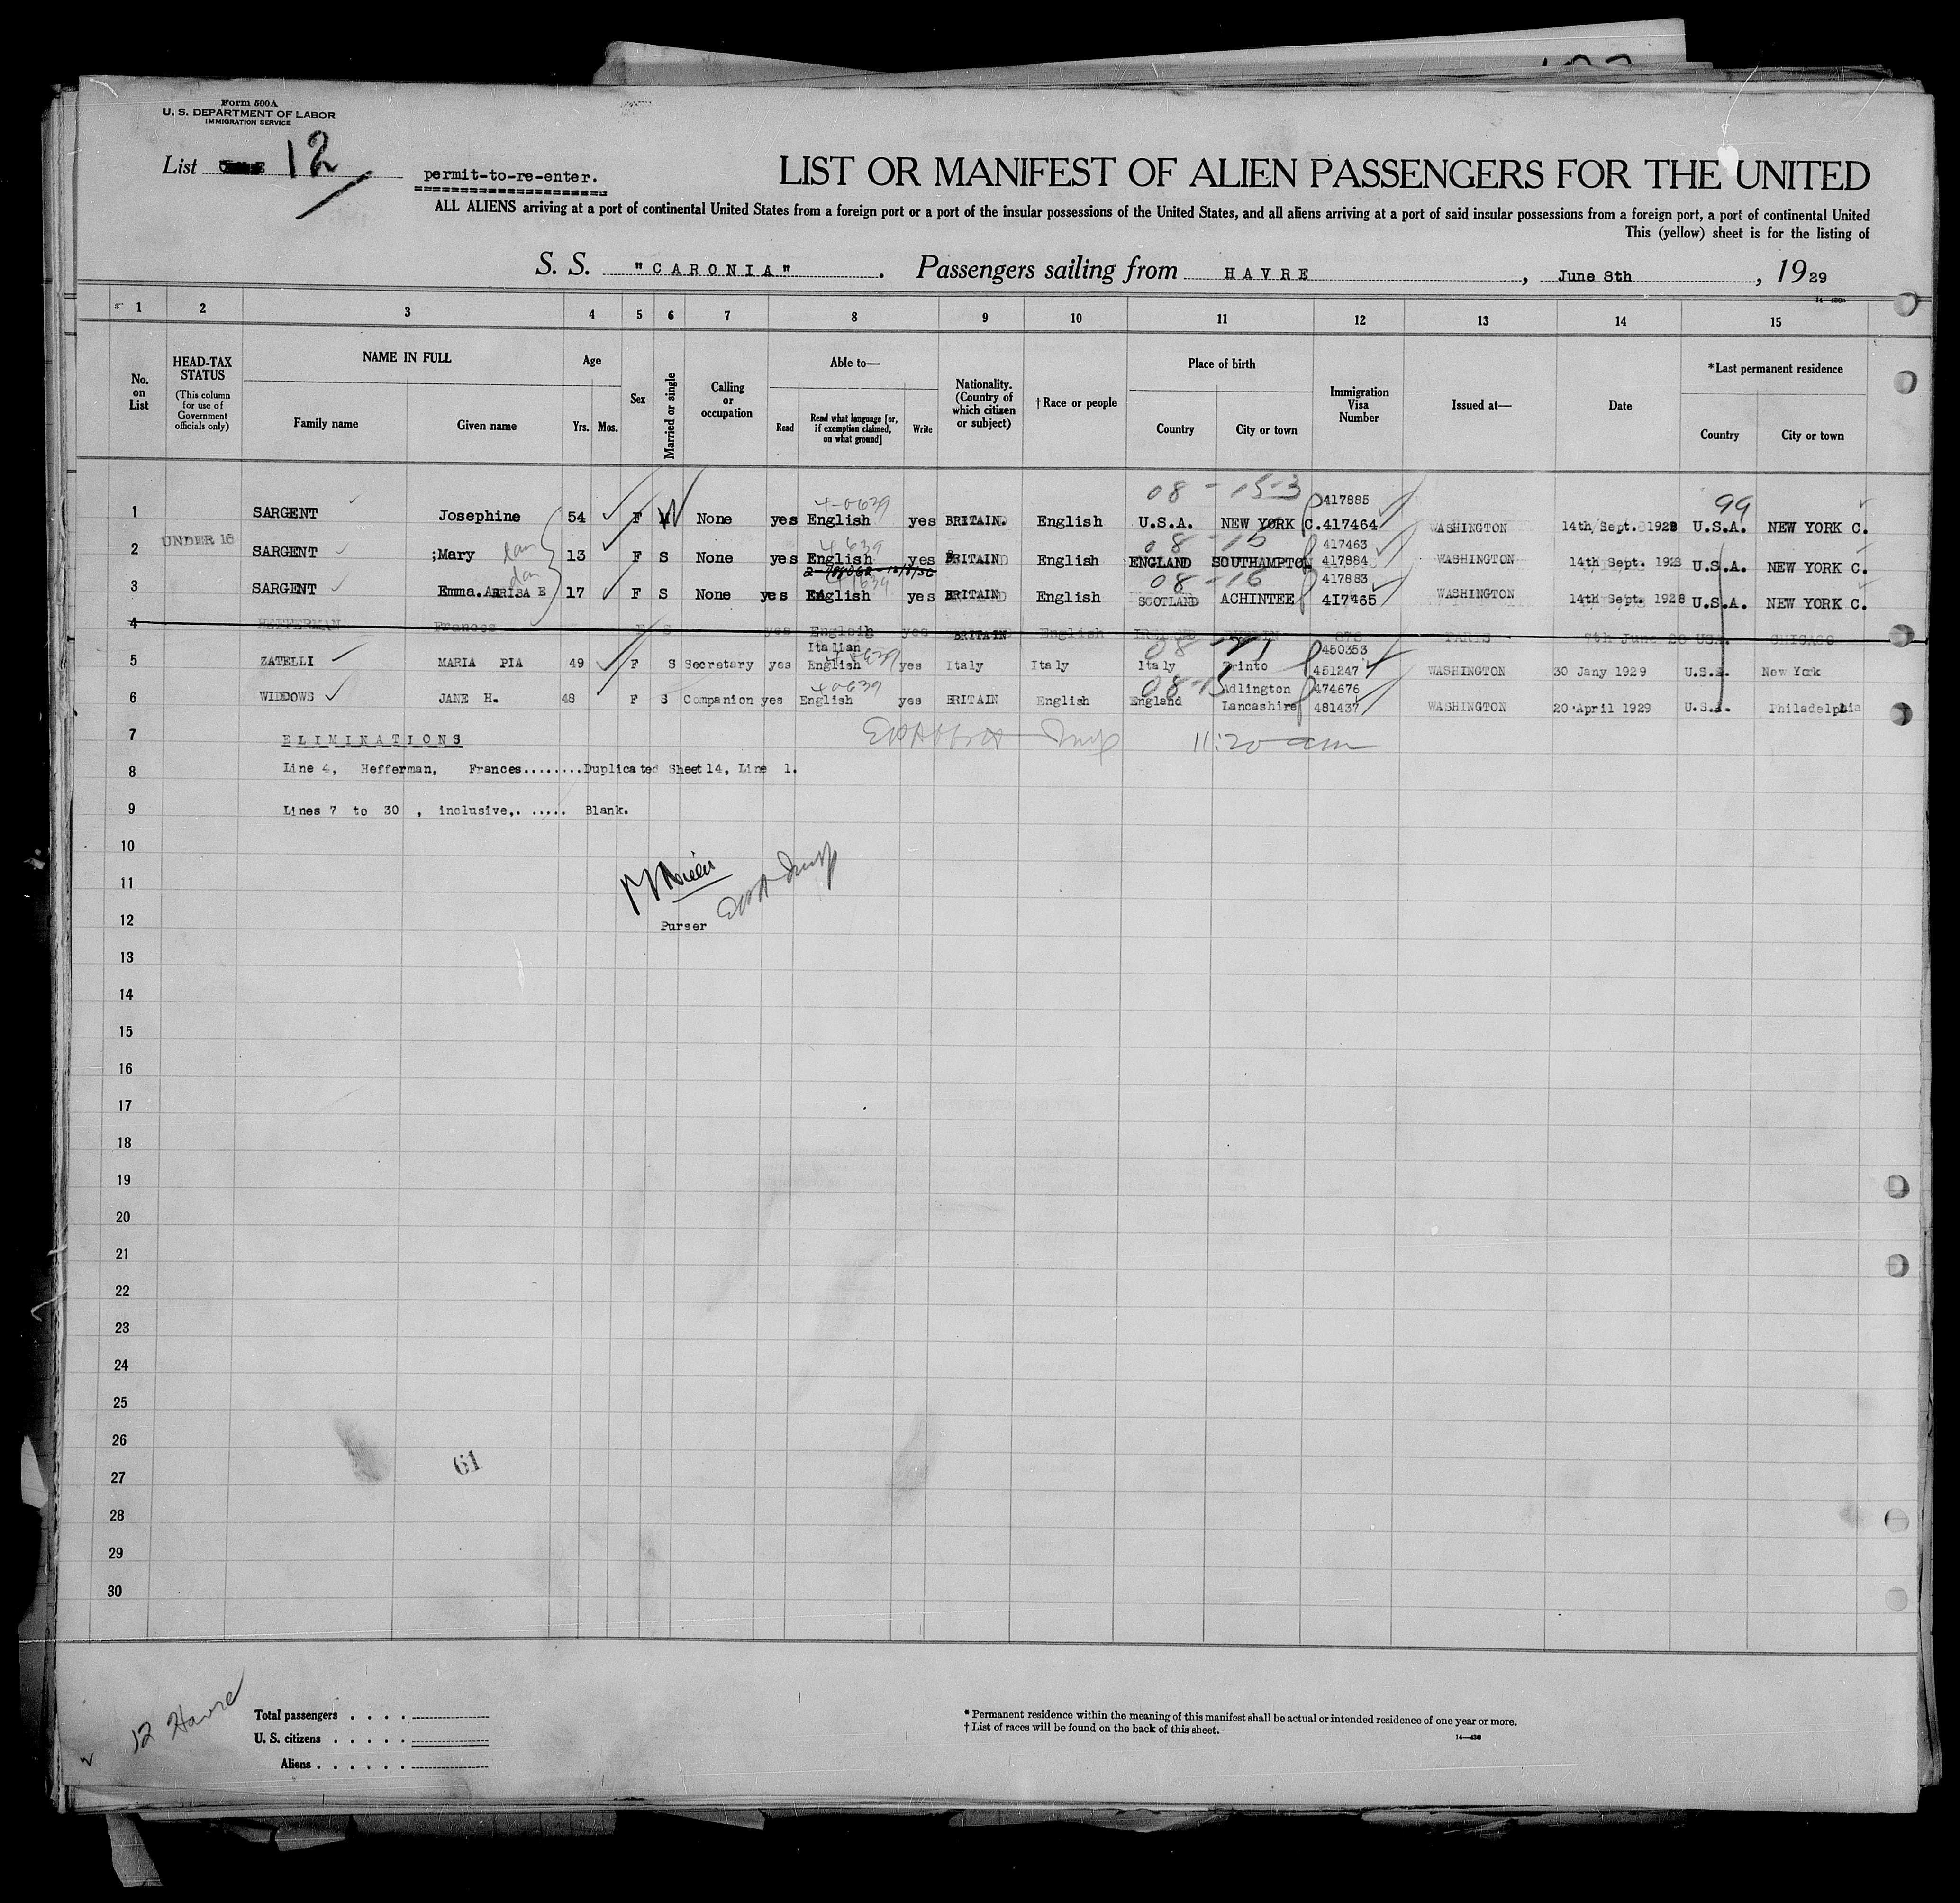 Form 500A
U. S. DEPARTMENT OF LABOR
IMMIGRATION SERVICE
List 12
permit-to-re-enter.
LIST OR MANIFEST OF ALIEN PASSENGERS FOR THE UNITED
ALL ALIENS arriving at a port of continental United States from a foreign port or a port of the insular possessions of the United States, and all aliens arriving at a port of said insular possessions from a foreign port, a port of continental United
This (yellow) sheet is for the listing of
S. S. "CARONIA". Passengers sailing from HAVRE, June 8th, 1929
1 2 3 4 5 6 7 8 9 10 11 12 13 14 15
No. on List
HEAD-TAX STATUS
(This column for use of Government officials only)
NAME IN FULL
Family name Given name
Age
Yrs. Mos.
Sex
Married or single
Calling or occupation
Able to—
Read Read what language [or, if exemption claimed, on what ground] Write
Nationality. (Country of which citizen or subject)
†Race or people
Place of birth
Country City or town
Immigration Visa Number
Issued at—
Date
*Last permanent residence
Country City or town
08 - 15-3 417885 99
4-0639
1 SARGENT Josephine 54 F W None yes English yes BRITAIN. English U.S.A. NEW YORK C. 417464 WASHINGTON 14th Sept. 1928 U.S.A. NEW YORK C.
UNDER 16
4 639 08 - 15 417463
2 SARGENT ;Mary dau 13 F S None yes English yes BRITAIN English ENGLAND SOUTHAMPTON 417884 WASHINGTON 14th Sept. 1928 U.S.A. NEW YORK C.
08 - 16 417883
3 SARGENT Emma. ARRISA E dau 17 F S None yes English yes BRITAIN English SCOTLAND ACHINTEE 417465 WASHINGTON 14th Sept. 1928 U.S.A. NEW YORK C.
4 HEFFERMAN Frances F S yes English yes BRITAIN English IRELAND 878 PARIS 7th June USA. CHICAGO
Italian 450353
5 ZATELLI MARIA PIA 49 F S Secretary yes English yes Italy Italy Italy Trinto 451247 WASHINGTON 30 Jany 1929 U.S.A. New York
4-0639 08-15 Adlington 474676
6 WIDDOWS JANE H. 48 F S Companion yes English yes BRITAIN English England Lancashire 481437 WASHINGTON 20 April 1929 U.S.A. Philadelphia
7 ELIMINATIONS 11:20 am
8 Line 4, Hefferman, Frances........Duplicated Sheet 14, Line 1.
9 Lines 7 to 30 , inclusive,. ..... Blank.
10
11
12 Purser
13
14
15
16
17
18
19
20
21
22
23
24
25
26
27 61
28
29
30
12 Havre
Total passengers . . . .
U. S. citizens . . . . .
Aliens . . . . . .
* Permanent residence within the meaning of this manifest shall be actual or intended residence of one year or more.
† List of races will be found on the back of this sheet.